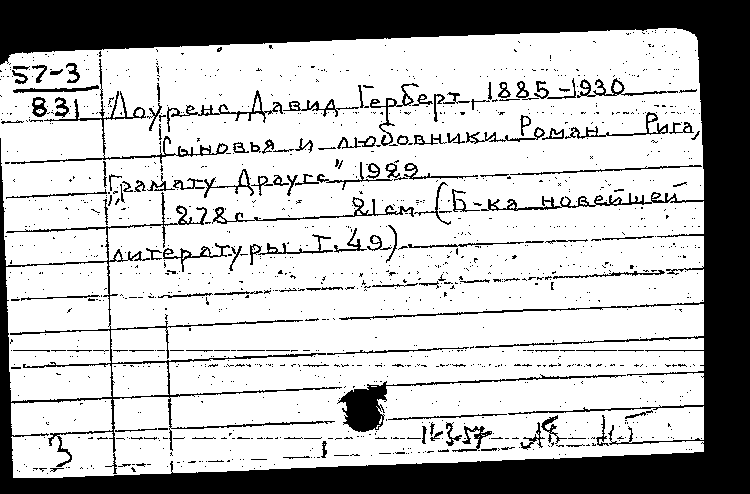 57-3
831
Лоуренс, Давид Герберт, 1885-1930
Сыновья и любовники. Роман. Рига,
"Грамату Драугс", 1929.
272 с. 21 см. (Б-ка новейшей
литературы. Т. 49).
3
1
11-3-57